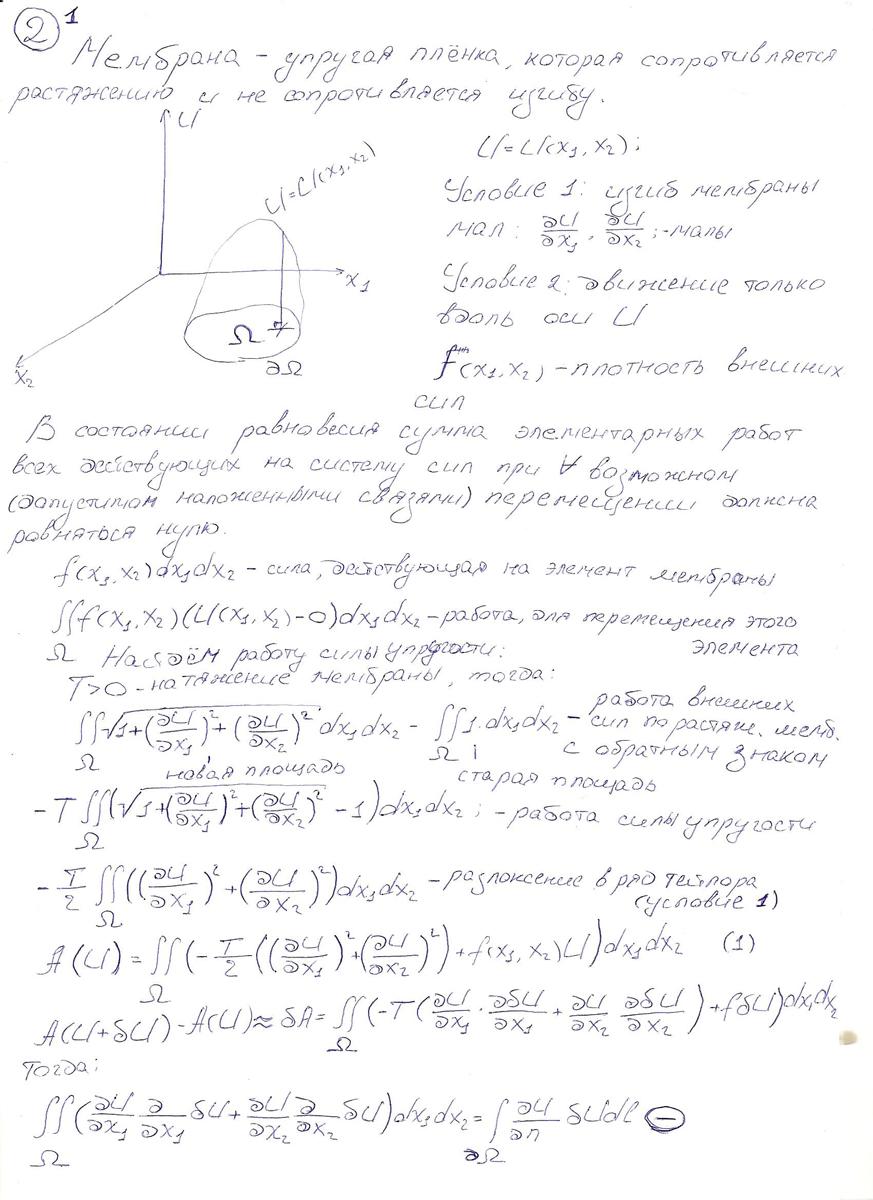 2 1
Мембрана - упругая плёнка, которая сопротивляется
растяжению и не сопротивляется изгибу.
U
U=U(x₁, x₂)
x₁
x₂
Ω
∂Ω
U=U(x₁, x₂);
Условие 1: изгиб мембраны
мал: ∂U/∂x₁, ∂U/∂x₂; -малы
Условие 2: движение только
вдоль оси U
f(x₁, x₂) - плотность внешних
сил
В состоянии равновесия сумма элементарных работ
всех действующих на систему сил при ∀ возможном
(допустимом наложенными связями) перемещении должна
равняться нулю.
f(x₁, x₂)dx₁dx₂ - сила, действующая на элемент мембраны
∬_Ω f(x₁, x₂)(U(x₁, x₂)-0)dx₁dx₂ - работа, для перемещения этого
элемента
Найдём работу силы упругости:
T>0 - натяжение мембраны, тогда:
∬_Ω √(1+(∂U/∂x₁)²+(∂U/∂x₂)²) dx₁dx₂ - ∬_Ω 1·dx₁dx₂ - работа внешних
сил по растяж. мемб.
с обратным знаком
новая площадь
старая площадь
-T∬_Ω(√(1+(∂U/∂x₁)²+(∂U/∂x₂)²) -1)dx₁dx₂; - работа силы упругости
-T/2 ∬_Ω((∂U/∂x₁)²+(∂U/∂x₂)²)dx₁dx₂ - разложение в ряд Тейлора
(условие 1)
A(U) = ∬_Ω(-T/2((∂U/∂x₁)²+(∂U/∂x₂)²)+f(x₁, x₂)U)dx₁dx₂ (1)
A(U+δU)-A(U)≈δA=∬_Ω(-T(∂U/∂x₁·∂δU/∂x₁+∂U/∂x₂ ∂δU/∂x₂)+fδU)dx₁dx₂
Тогда:
∬_Ω(∂U/∂x₁ ∂/∂x₁ δU+∂U/∂x₂ ∂/∂x₂ δU)dx₁dx₂=∫_∂Ω ∂U/∂n δUdl ⊖